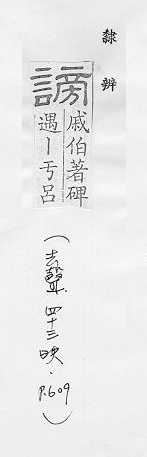 隸辨
謗
戚伯著碑
遇丨于呂
（去聲 四十三映．P.609）